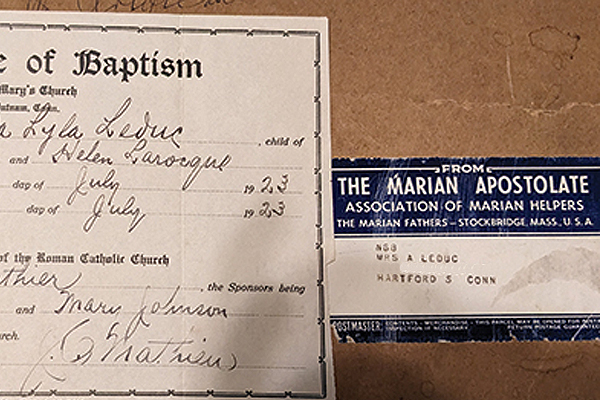 e of Baptism
Mary's Church
Putnam, Conn.
a Lyla Leduc, child of
and Helen Larocque
day of July 1923
day of July 1923
of the Roman Catholic Church
thier, the Sponsors being
and Mary Johnson
urch.
J. C. Mathieu
FROM
THE MARIAN APOSTOLATE
ASSOCIATION OF MARIAN HELPERS
THE MARIAN FATHERS – STOCKBRIDGE, MASS., U. S. A.
NGB
MRS A LEDUC
HARTFORD 5 CONN
POSTMASTER: CONTENTS - MERCHANDISE - THIS PARCEL MAY BE OPENED FOR POSTAL
INSPECTION IF NECESSARY. RETURN POSTAGE GUARANTEED